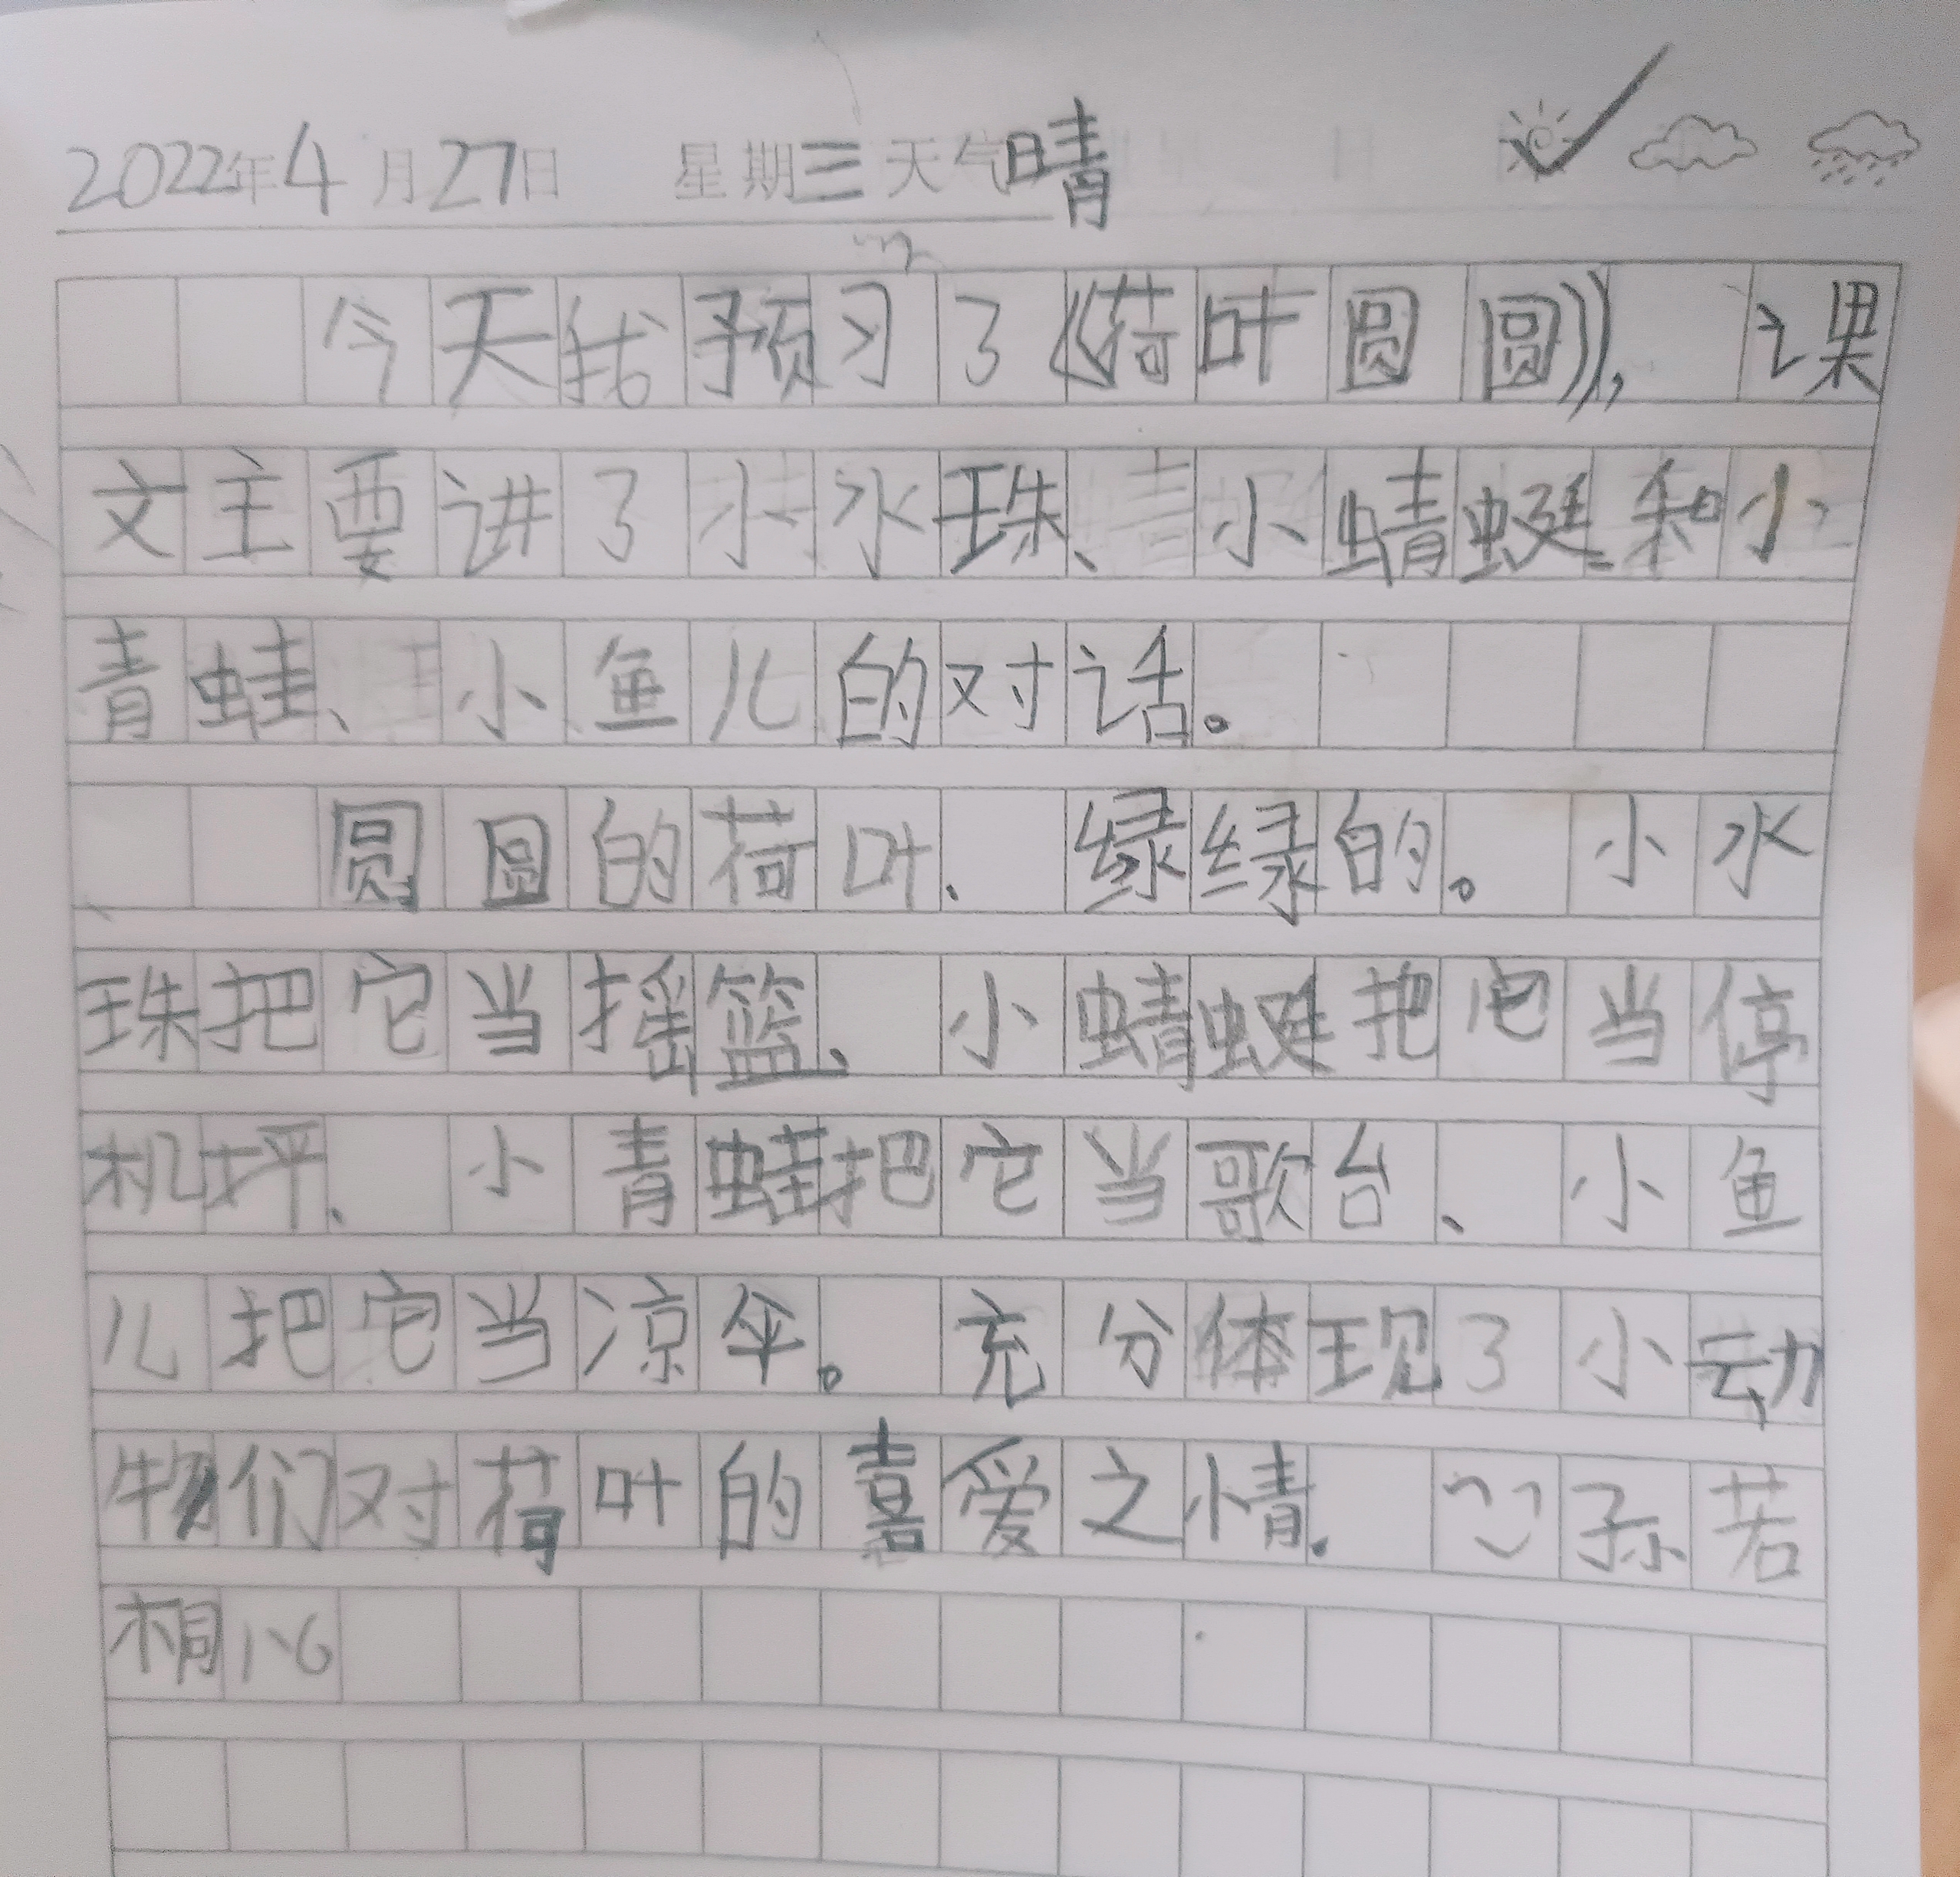 2022年4月27日 星期三天气晴
今天我预习了《荷叶圆圆》，课
文主要讲了小水珠、小蜻蜓和小
青蛙、小鱼儿的对话。
圆圆的荷叶、绿绿的。小水
珠把它当摇篮、小蜻蜓把它当停
机坪、小青蛙把它当歌台、小鱼
儿把它当凉伞。充分体现了小动
物们对荷叶的喜爱之情.孙若